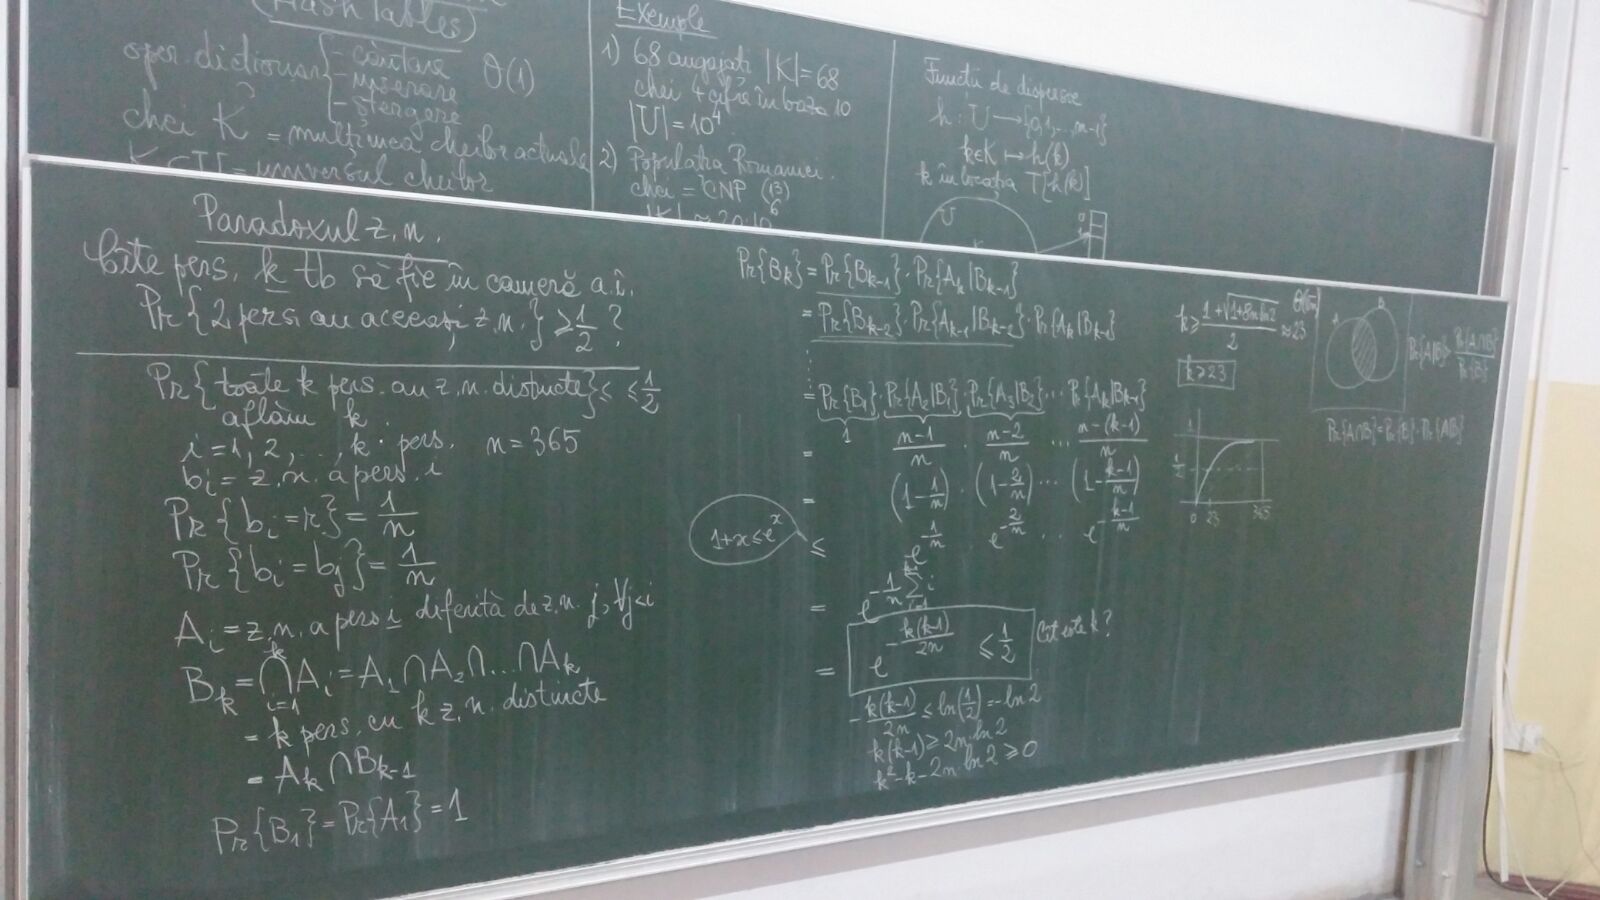 (Hash Tables)
oper. dicționar { - căutare
- inserare
- ștergere
Θ(1)
chei K = mulțimea cheilor actuale
K ⊂ U = universul cheilor
Exemple
1) 68 angajati |K|=68
chei 4 cifre în baza 10
|U|=10⁴
2) Populatia Romaniei.
chei = CNP (13)
Functii de dispersie
h: U → {0,1,..,m-1}
k∈K ↦ h(k)
k în locația T[h(k)]
U
K
0
1
Paradoxul z.n.
Cîte pers. k tb să fie în cameră a.î.
Pr{2 pers au aceeași z.n.} ≥ 1/2 ?
Pr{toate k pers. au z.n. distincte} ≤ ≤ 1/2
aflăm k.
i=1,2,...,k. pers. n=365
bᵢ = z.n. a pers. i
Pr{bᵢ=r} = 1/n
Pr{bᵢ=bⱼ} = 1/n
Aᵢ = z.n. a pers i diferită de z.n. j, ∀j<i
Bₖ = ⋂ᵢ₌₁ᵏ Aᵢ = A₁∩A₂∩...∩Aₖ
= k pers. cu k z.n. distincte
= Aₖ∩Bₖ₋₁
Pr{B₁} = Pr{A₁} = 1
Pr{Bₖ} = Pr{Bₖ₋₁}·Pr{Aₖ|Bₖ₋₁}
= Pr{Bₖ₋₂}·Pr{Aₖ₋₁|Bₖ₋₂}·Pr{Aₖ|Bₖ₋₁}
⋮
= Pr{B₁}·Pr{A₂|B₁}·Pr{A₃|B₂}...Pr{Aₖ|Bₖ₋₁}
= 1 (n-1)/n · (n-2)/n ... (n-(k-1))/n
= (1-1/n)·(1-2/n)...(1-(k-1)/n)
1+x≤eˣ
≤ e^(-1/n) e^(-2/n) ... e^(-(k-1)/n)
= e^(-1/n ∑ᵢ₌₁ᵏ⁻¹ i)
= e^(-k(k-1)/2n) ≤ 1/2 Cît este k?
-k(k-1)/2n ≤ ln(1/2) = -ln 2
k(k-1) ≥ 2n ln 2
k²-k-2n ln 2 ≥ 0
k ≥ (1+√(1+8n ln 2))/2 ≈ 23
Θ(√n)
k≥23
1
1/2
0 23 365
A B
Pr{A|B} = Pr{A∩B}/Pr{B}
Pr{A∩B} = Pr{B}·Pr{A|B}